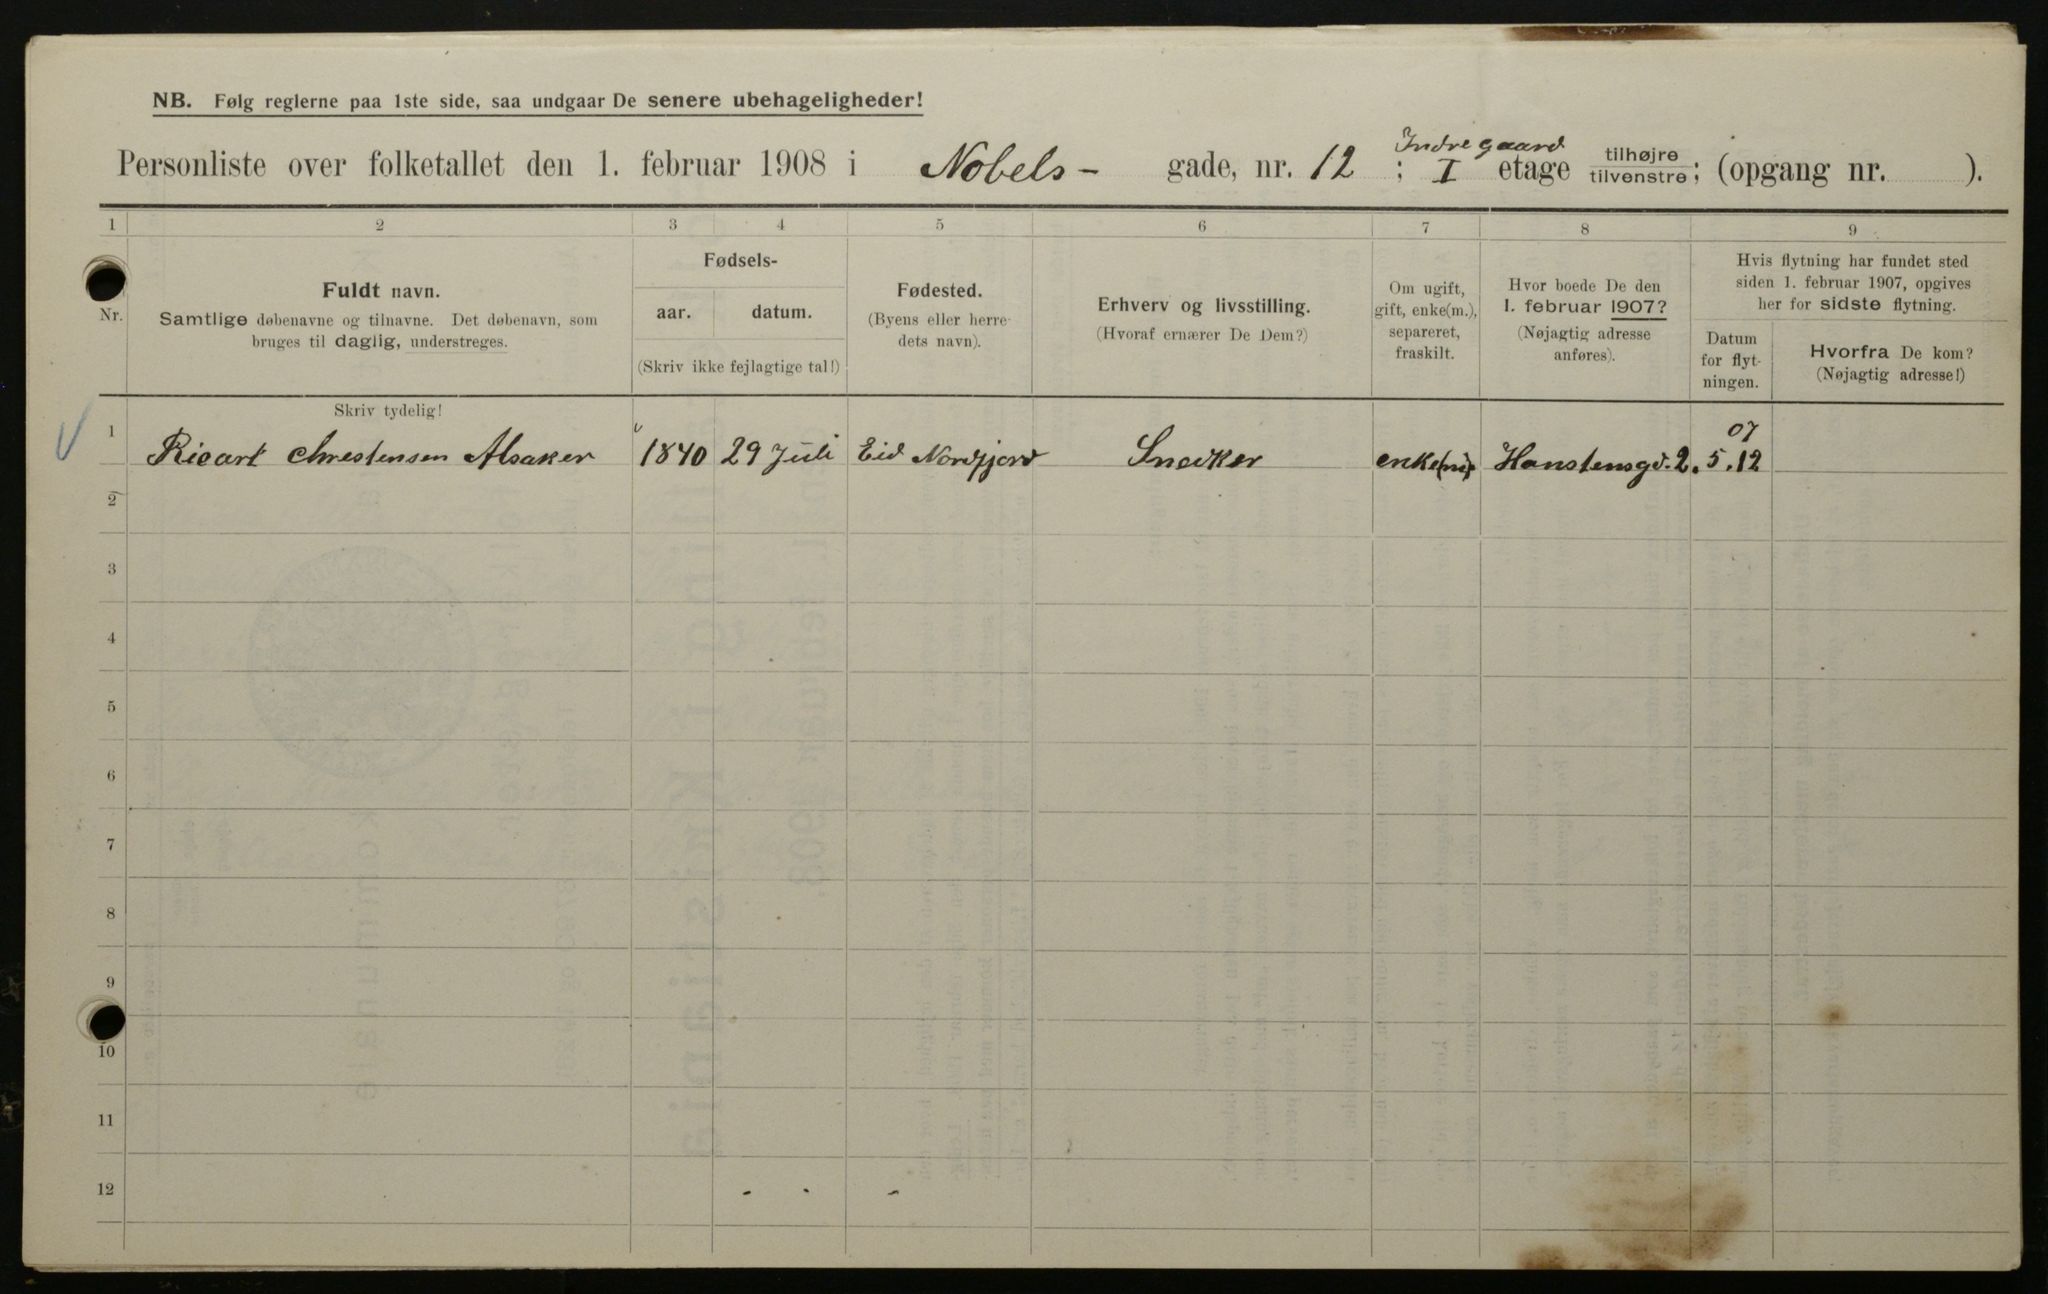 NB. Følg reglerne paa 1ste side, saa undgaar De senere ubehageligheder!
Indregaard
Personliste over folketallet den 1. februar 1908 i Nobels- gade, nr. 12 ; I etage tilhøjre tilvenstre; (opgang nr. ).
1 2 3 4 5 6 7 8 9
Nr.
Fuldt navn.
Samtlige døbenavne og tilnavne. Det døbenavn, som
bruges til daglig, understreges.
Fødsels-
aar. datum.
(Skriv ikke fejlagtige tal!)
Fødested.
(Byens eller herre-
dets navn).
Erhverv og livsstilling.
(Hvoraf ernærer De Dem?)
Om ugift,
gift, enke(m.),
separeret,
fraskilt.
Hvor boede De den
1. februar 1907?
(Nøjagtig adresse
anføres).
Hvis flytning har fundet sted
siden 1. februar 1907, opgives
her for sidste flytning.
Datum
for flyt-
ningen.
Hvorfra De kom?
(Nøjagtig adresse!)
Skriv tydelig!
07
1 Ricart Chrestensen Alsaker 1840 29 Juli Eid Nordfjord Snedker enke(m) Hanstensgd. 2. 5.12
2
3
4
5
6
7
8
9
10
11
12